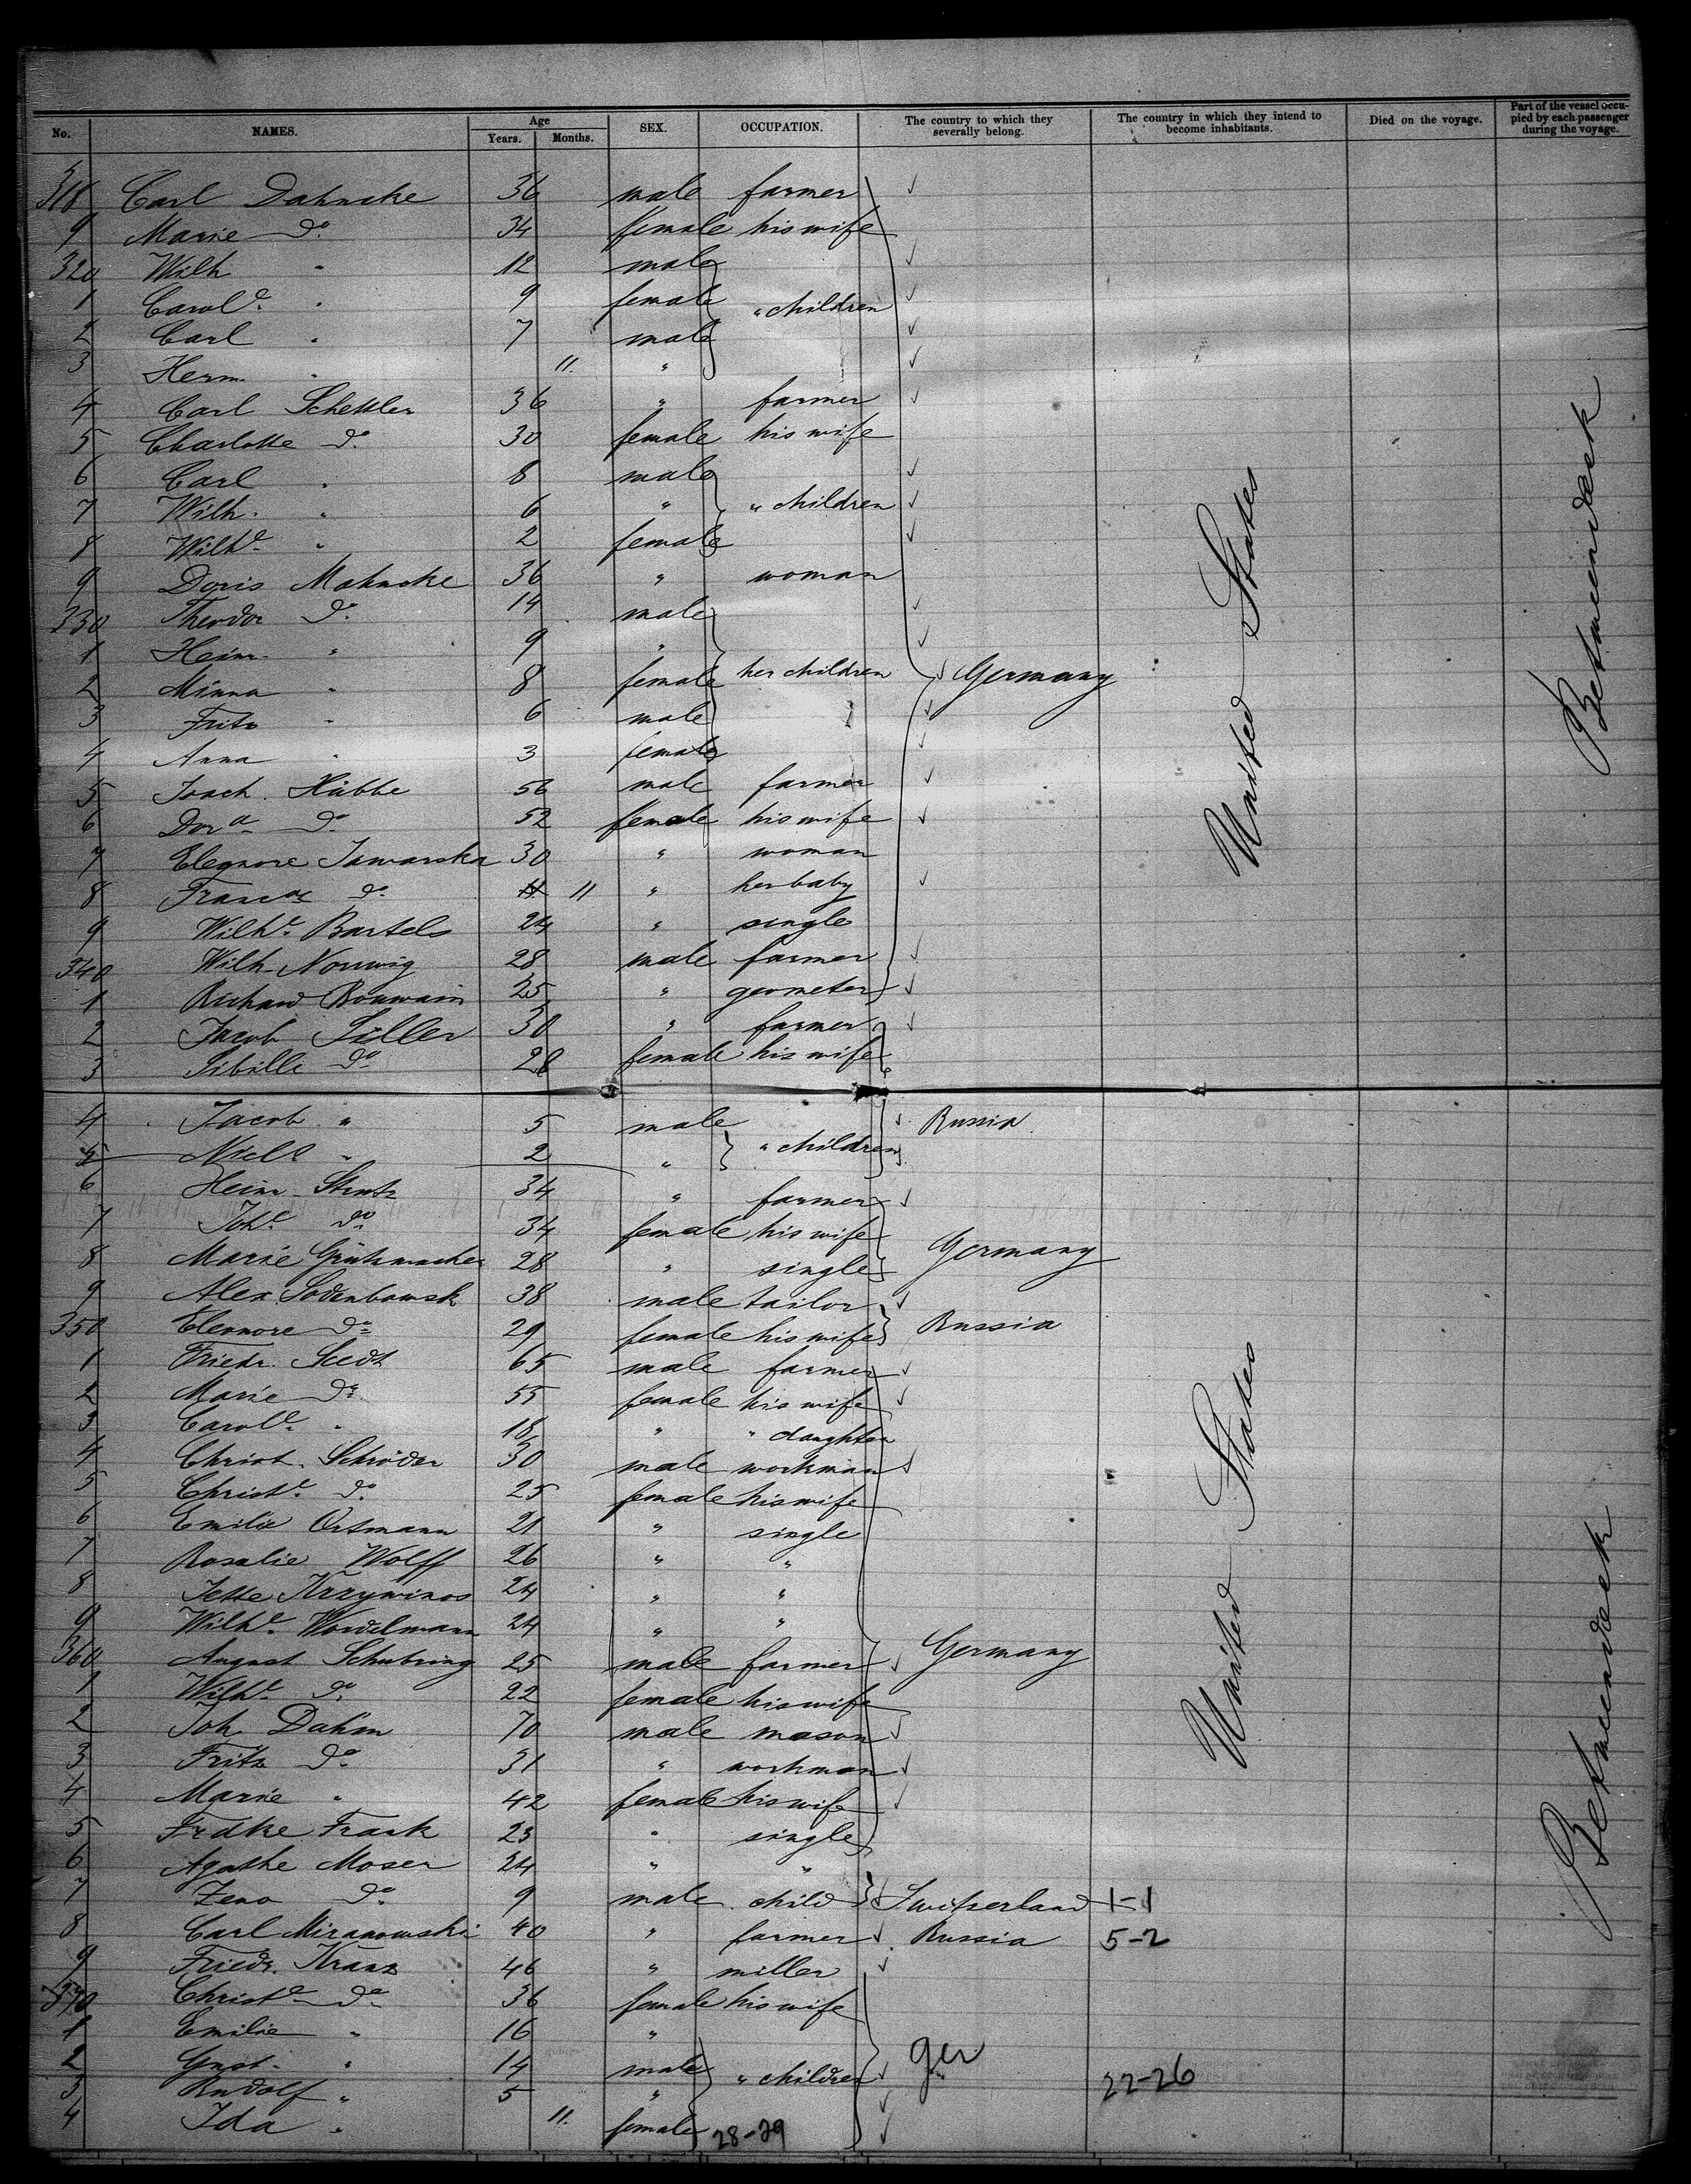 No. NAMES. Age Years. Months. SEX. OCCUPATION. The country to which they severally belong. The country in which they intend to become inhabitants. Died on the voyage. Part of the vessel occupied by each passenger during the voyage.
318 Carl Dahncke 36 male farmer
9 Marie do 34 female his wife
320 Wilh " 12 male
1 Carole " 9 female " children
2 Carl " 7 male
3 Herm. " 11. "
4 Carl Schettler 36 " farmer
5 Charlotte do 30 female his wife
6 Carl " 8 male
7 Wilh. " 6 " " children
8 Wilhe " 2 female
9 Doris Mahncke 36 " woman
330 Theodor do 14 male
1 Heinr. " 9 "
2 Minna " 8 female her children Germany
3 Fritz " 6 male
4 Anna " 3 female
5 Joach. Hübbe 56 male farmer
6 Dora do 52 female his wife
7 Eleonore Jawarska 30 " woman
8 do 11 " her baby
9 Wilhe Bartels 24 " single
340 Wilh. 28 male farmer
1 Richard 25 " geometer
2 Jacob 30 " farmer
3 Sibille do 28 female his wife
4 Jacob " 5 male Russia
5 " 2 " " children
6 Heinr. 34 " farmer
7 Johe do 34 female his wife
8 Marie Grützmacher 28 " single Germany
9 Alex. 38 male tailor
350 Eleonore do 29 female his wife Russia
1 Friedr. 65 male farmer
2 Marie do 55 female his wife
3 Carole " 18 " " daughter
4 Christ. Schröder 30 male workman
5 Christe do 25 female his wife
6 Emilie Ortmann 21 " single
7 Rosalie Wolff 26 " "
8 Jette 24 " "
9 Wilhe 24 " "
360 August Schubring 25 male farmer Germany
1 Wilhe do 22 female his wife
2 Joh. Dahm 70 male mason
3 Fritz do 31 " workman
4 Marie " 42 female his wife
5 Frdke Frank 23 " single
6 Agathe Moser 24 " "
7 Zeno do 9 male child Switzerland 1-1
8 Carl Miranowski 40 " farmer Russia 5-2
9 Friedr. Kranz 46 " miller
370 Christe do 36 female his wife
1 Emilie " 16 "
2 Gust. " 14 male " children Ger
3 Rudolf " 5 " 22-26
4 Ida " 11. female 28-29
United States
United States
Betweendeck
Betweendeck